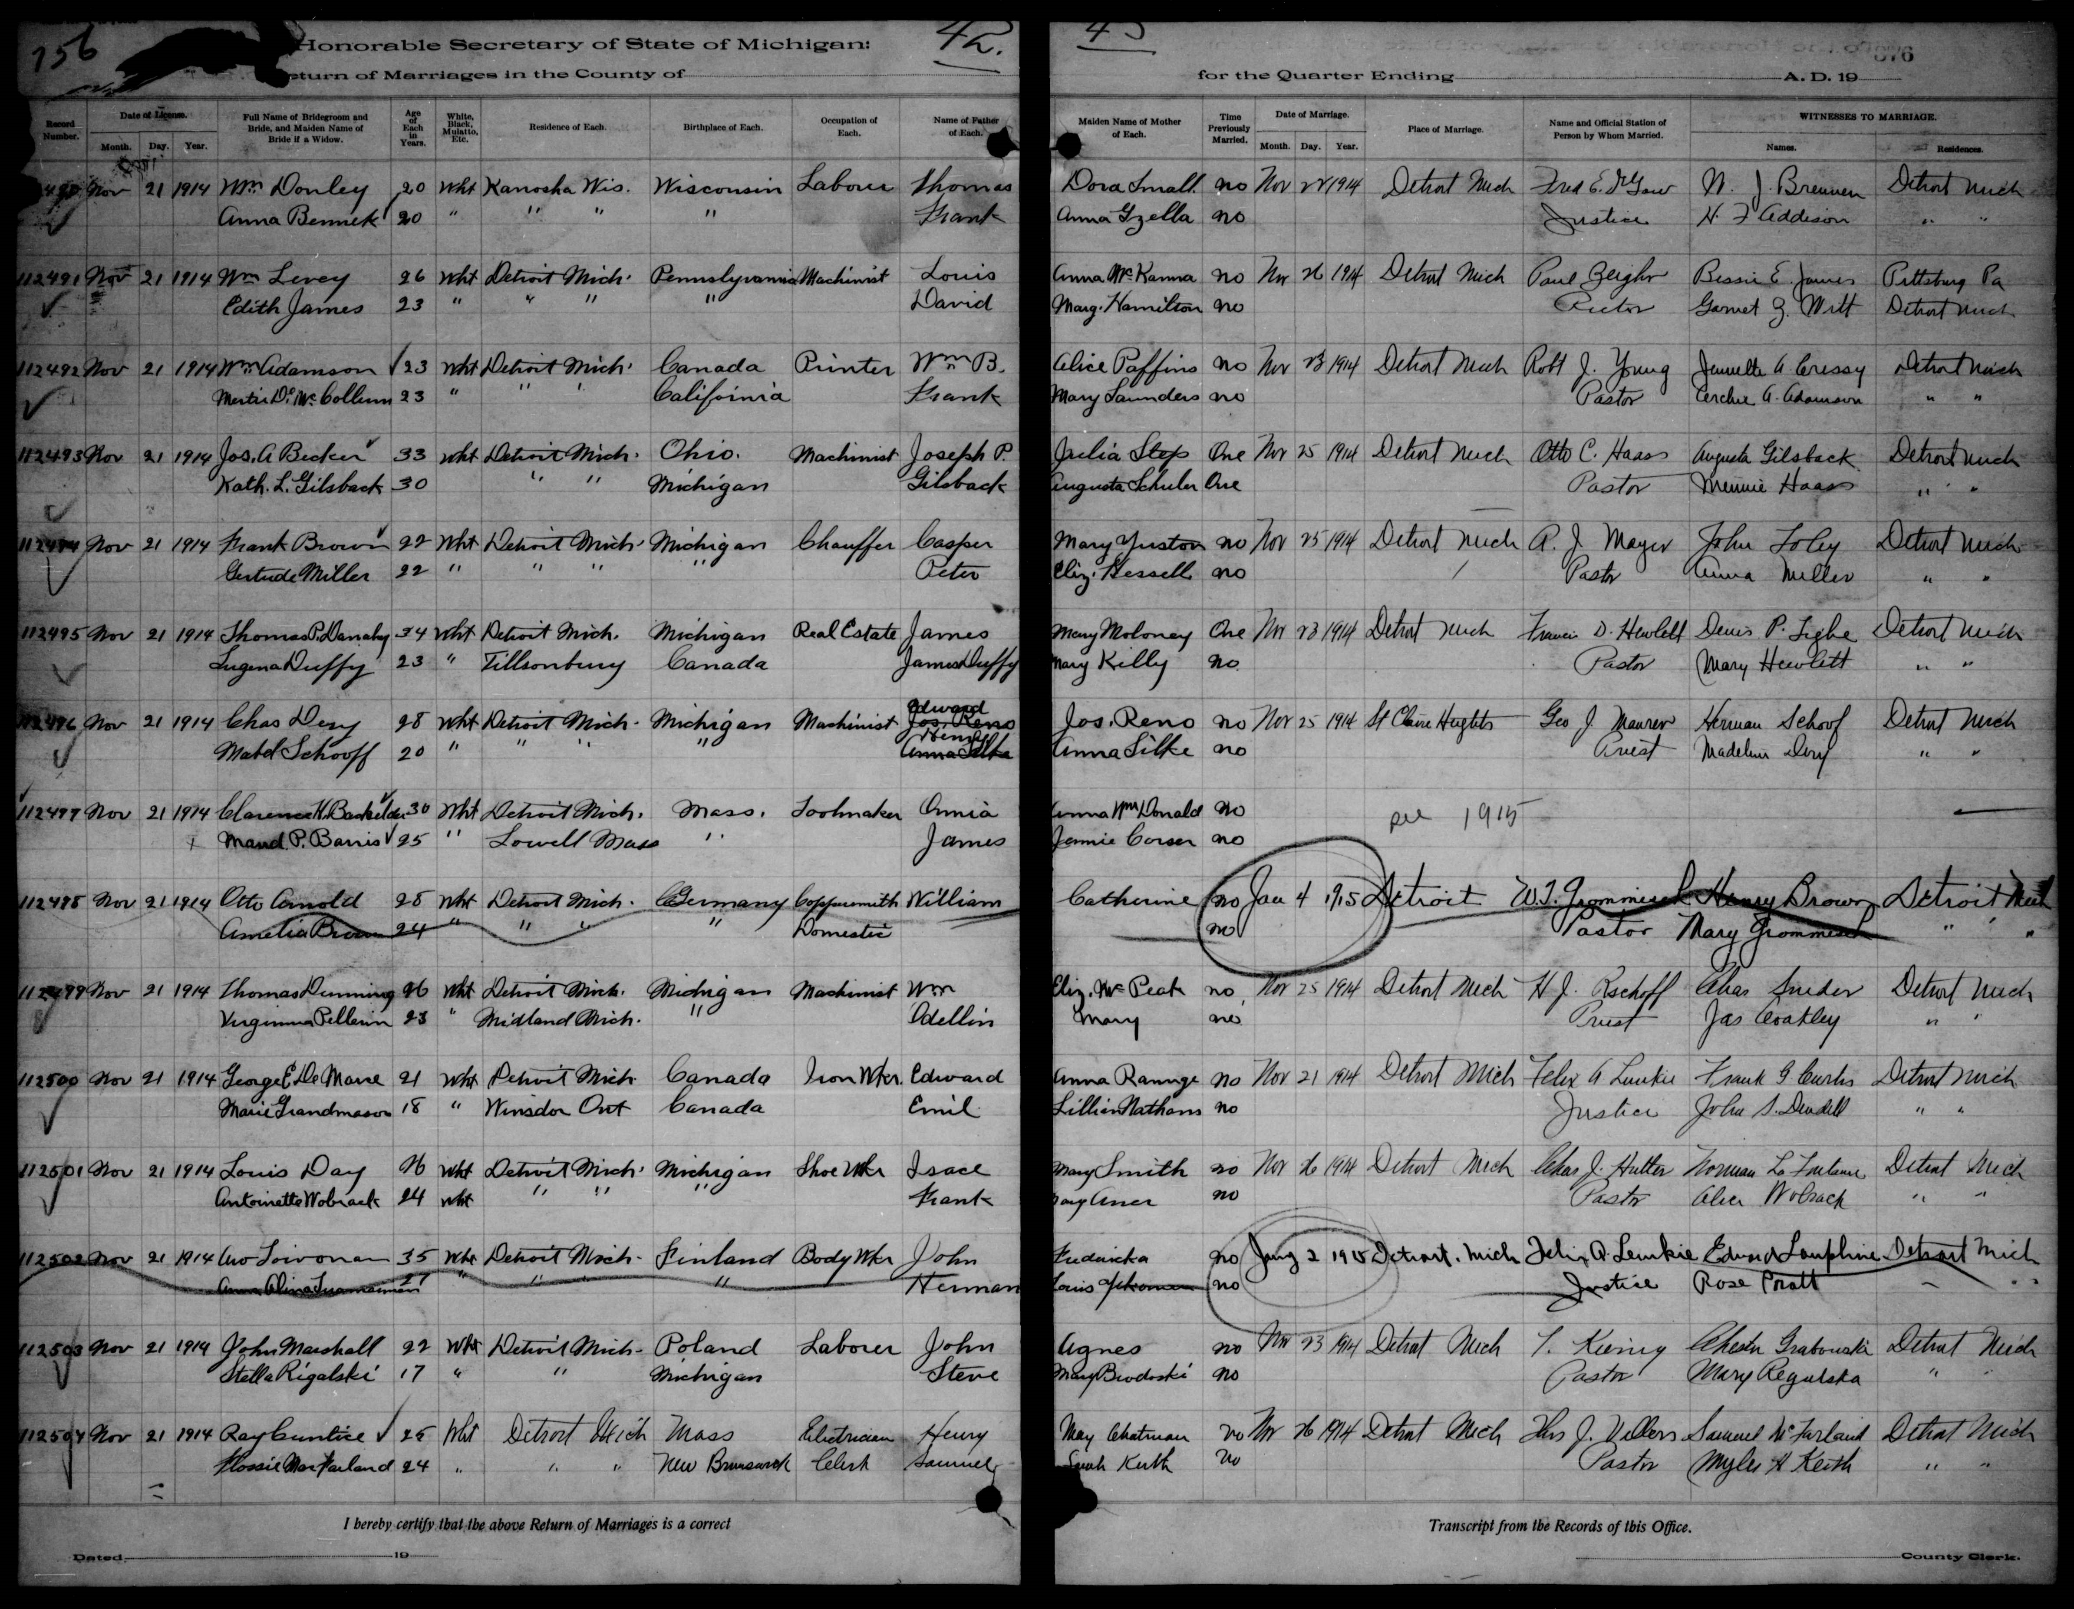 256
Honorable Secretary of State of Michigan:
42.
43
376
Return of Marriages in the County of
for the Quarter Ending
A. D. 19
Record Number.
Date of License.
Month. Day. Year.
Full Name of Bridegroom and Bride, and Maiden Name of Bride if a Widow.
Age of Each in Years.
White, Black, Mulatto, Etc.
Residence of Each.
Birthplace of Each.
Occupation of Each.
Name of Father of Each.
Maiden Name of Mother of Each.
Time Previously Married.
Date of Marriage.
Month. Day. Year.
Place of Marriage.
Name and Official Station of Person by Whom Married.
WITNESSES TO MARRIAGE.
Names.
Residences.
Nov 21 1914 Wm Donley 20 Wht Kanosha Wis. Wisconsin Laborer Thomas Dora Small. no Nov 22 1914 Detroit Mich Fred E. W. J. Brennen Detroit Mich
Anna Bennek 20 " " " " Frank Anna Gzella no Justice H. F Addison " "
112491 Nov 21 1914 Wm Levey 26 Wht Detroit Mich. Pennslyvannia Machinist Louis Anna McKanna no Nov 26 1914 Detroit Mich Paul Zeigler Bessie E. James Pittsburg Pa
Edith James 23 " " " " David Marg. Hamilton no Rector Garnet Z. Witt Detroit Mich
112492 Nov 21 1914 Wm Adamson 23 Wht Detroit Mich. Canada Printer Wm B. Alice Paffins no Nov 23 1914 Detroit Mich Robt J. Young Jennette A Cressy Detroit Mich
Mertie D. McCollum 23 " " " California Frank Mary Saunders no Pastor Archie A. Adamson " "
112493 Nov 21 1914 Jos. A Becker 33 Wht Detroit Mich. Ohio. Machinist Joseph P. Julia Step One Nov 25 1914 Detroit Mich Otto C. Haass Augusta Gilsback Detroit Mich
Kath. L. Gilsback 30 " " Michigan Gilsback Augusta Schuler One Pastor Minnie Haass " "
112494 Nov 21 1914 Frank Brown 22 Wht Detroit Mich. Michigan Chauffer Casper Mary Yuston no Nov 25 1914 Detroit Mich A. J Mayer John Foley Detroit Mich
Gertrude Miller 22 " " " " Peter Eliz. Hessell no Pastor Anna Miller " "
112495 Nov 21 1914 Thomas P. Danahy 34 Wht Detroit Mich. Michigan Real Estate James Mary Moloney One Nov 23 1914 Detroit Mich Francis D. Hewlett Denis P. Tighe Detroit Mich
Eugena Duffy 23 " Tillsonburg Canada James Duffy Mary Killy no. Pastor Mary Hewlett " "
Edward
112496 Nov 21 1914 Chas Dery 28 Wht Detroit Mich. Michigan Machinist Jos. Reno Jos. Reno no Nov 25 1914 St Claire Heights Geo J. Maurer Herman Schoof Detroit Mich
Henry
Mabel Schooff 20 " " " " Anna Silke Anna Silke no Priest Madeline Dery " "
112497 Nov 21 1914 Clarence H. 30 Wht Detroit Mich. Mass. Toolmaker Annia Anna Donald no
Maud. P. Barris 25 " Lowell Mass " James Jennie Corser no
see 1915
112498 Nov 21 1914 Otto Arnold 28 Wht Detroit Mich. Germany Coppersmith William Catherine no Jan 4 1915 Detroit W.T. Grommisch Henry Brown Detroit Mich
Amelia Brown 24 " " " " Domestic no Pastor Mary Grommisch " "
112499 Nov 21 1914 Thomas Dunning 26 Wht Detroit Mich. Michigan Machinist Wm Eliz. McPeak no Nov 25 1914 Detroit Mich H J. Rschoff Chas Snider Detroit Mich
Virginnia Pellerin 23 " Midland Mich. " Odellin Mary no Priest Jas Coakley " "
112500 Nov 21 1914 George E. De Marre 21 Wht Detroit Mich. Canada Iron Wkr. Edward Anna Rannge no Nov 21 1914 Detroit Mich Felix A Lemkie Frank G Curtis Detroit Mich
Marie Grandmason 18 " Winsdor Ont Canada Emil Lillien Nathans no Justice John S. " "
112501 Nov 21 1914 Louis Day 26 Wht Detroit Mich. Michigan Shoe Wkr Isace Mary Smith no Nov 26 1914 Detroit Mich Chas J. Hutter Norman La Detroit Mich
Antoinette Wobrack 24 Wht " " " Frank no Pastor Alice Wobrack " "
112502 Nov 21 1914 35 Wht Detroit Mich. Finland Body Wkr John Fredricka no Jany 2 1915 Detroit. Mich Felix A. Lemkie Edward Lauphine Detroit Mich
Anna Alina 27 " " " " Herman Louis no Justice Rose Pratt " "
112503 Nov 21 1914 John Marshall 22 Wht Detroit Mich. Poland Laborer John Agnes no Nov 23 1914 Detroit Mich Chester Grabowski Detroit Mich
Stella Rigalski 17 " " Michigan Steve Mary Brodoski no Pastor Mary Regulska " "
112504 Nov 21 1914 Ray Cuntice 25 Wht Detroit Mich Mass Electrician Henry May Chatman no Nov 26 1914 Detroit Mich Thos J. Villers Samuel McFarland Detroit Mich
Flossie MacFarland 24 " " " New Brunswick Clerk Samuel Sarah Keith No Pastor Myles H Keith " "
I hereby certify that the above Return of Marriages is a correct
Transcript from the Records of this Office.
Dated 19
County Clerk.